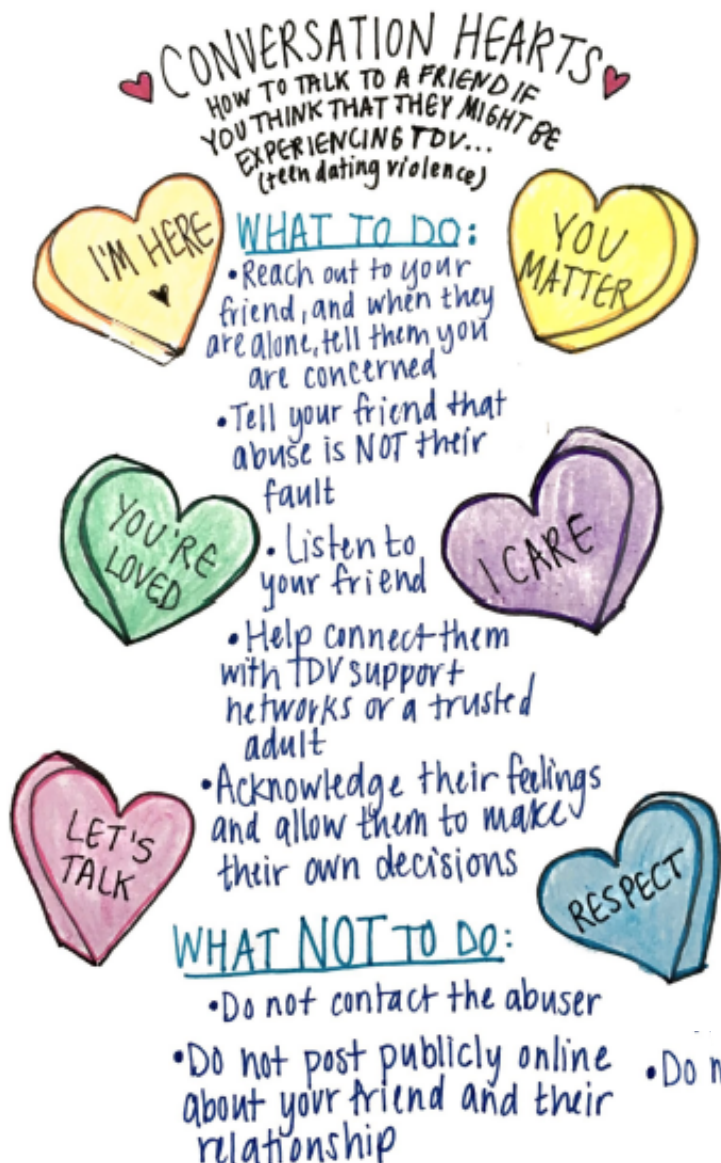 CONVERSATION HEARTS
HOW TO TALK TO A FRIEND IF
YOU THINK THAT THEY MIGHT BE
EXPERIENCING TDV...
(teen dating violence)
I'M HERE
YOU
MATTER
WHAT TO DO:
•Reach out to your
friend, and when they
are alone, tell them you
are concerned
•Tell your friend that
abuse is NOT their
fault
YOU'RE
LOVED
I CARE
•Listen to
your friend
•Help connect them
with TDV support
networks or a trusted
adult
•Acknowledge their feelings
and allow them to make
their own decisions
LET'S
TALK
RESPECT
WHAT NOT TO DO:
•Do not contact the abuser
•Do not post publicly online
about your friend and their
relationship
•Do